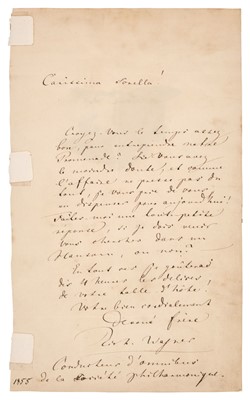 Carissima Sorella!
Croyez-Vous le temps assez
bon, pour entreprendre notre
promenade? Si Vous avez
le moindre doute, et comme
l'affaire ne presse pas du
tout, je Vous prie de Vous
en dispenser pour aujourd'hui.
Faites-moi une toute petite
réponse, si je dois venir
Vous chercher dans un
Hansom, ou non?
En tout cas je goûterai
dès 4 heures les délices
de votre table d'hôte.
Votre bien cordialement
dévoué frère
Rich. Wagner
Conducteur d'omnibus
de la société philharmonique.
1855